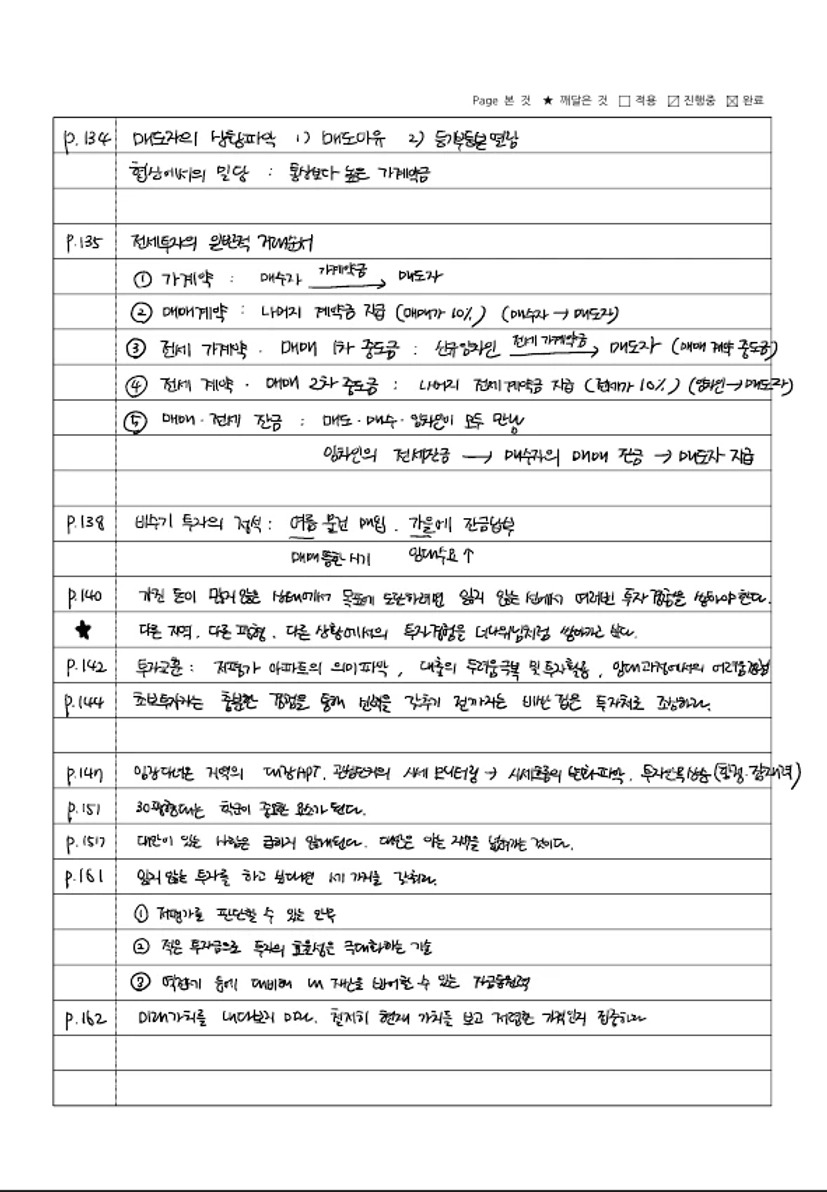 Page 본 것 ★ 깨달은 것 □ 적용 ☑ 진행중 ☒ 완료
p.134 매도자의 상황파악 1) 매도이유 2) 등기부등본 열람
협상에서의 밀당 : 통상보다 높은 가계약금
p.135 전세투자의 일반적 거래순서
① 가계약 : 매수자 가계약금→ 매도자
② 매매계약 : 나머지 계약금 지급 (매매가 10%) (매수자 → 매도자)
③ 전세 가계약 · 매매 1차 중도금 : 신규임차인 전세 가계약금→ 매도자 (매매 계약 중도금)
④ 전세 계약 · 매매 2차 중도금 : 나머지 전세계약금 지급 (전세가 10%) (임차인→매도자)
⑤ 매매 · 전세 잔금 : 매도 · 매수 · 임차인이 모두 만남
임차인의 전세잔금 → 매수자의 매매 잔금 → 매도자 지급
p.138 비수기 투자의 정석 : 여름 물건 매입, 가을에 잔금납부
매매 뜸한 시기 임대수요↑
p.140 가진 돈이 많지 않은 상태에서 목표에 도달하려면 잃지 않는 선에서 여러번 투자경험을 쌓아야 한다.
★ 다른 지역, 다른 평형, 다른 상황에서의 투자경험을 너나위님처럼 쌓아가고 싶다.
p.142 투자교훈 : 저평가 아파트의 의미파악, 대출의 두려움극복 및 투자활용, 임대과정에서의 어려움경험
p.144 초보투자자는 충분한 경험을 통해 실력을 갖추기 전까지는 비싼 집은 투자처로 조심하라.
p.147 임장다녀온 지역의 대장APT, 관심단지의 시세 모니터링 → 시세흐름의 변화파악, 투자안목상승 (환경·잠재력)
p.151 30평형대는 학군이 중요한 요소가 된다.
p.157 대안이 있는 사람은 급하지 않게된다. 대안은 아는 지역을 넓혀가는 것이다.
p.161 잃지 않는 투자를 하고 싶다면 3가지를 갖춰라.
① 저평가를 판단할 수 있는 안목
② 적은 투자금으로 투자의 효율성을 극대화하는 기술
③ 역전세 등에 대비해 내 재산을 방어할 수 있는 자금동원력
p.162 미래가치를 내다보지 마라. 철저히 현재 가치를 보고 저렴한 가격인지 집중하라